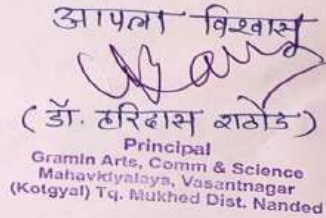 आपला विश्वासू
(डॉ. हरिदास राठोड)
Principal
Gramin Arts, Comm & Science
Mahavidyalaya, Vasantnagar
(Kotgyal) Tq. Mukhed Dist. Nanded